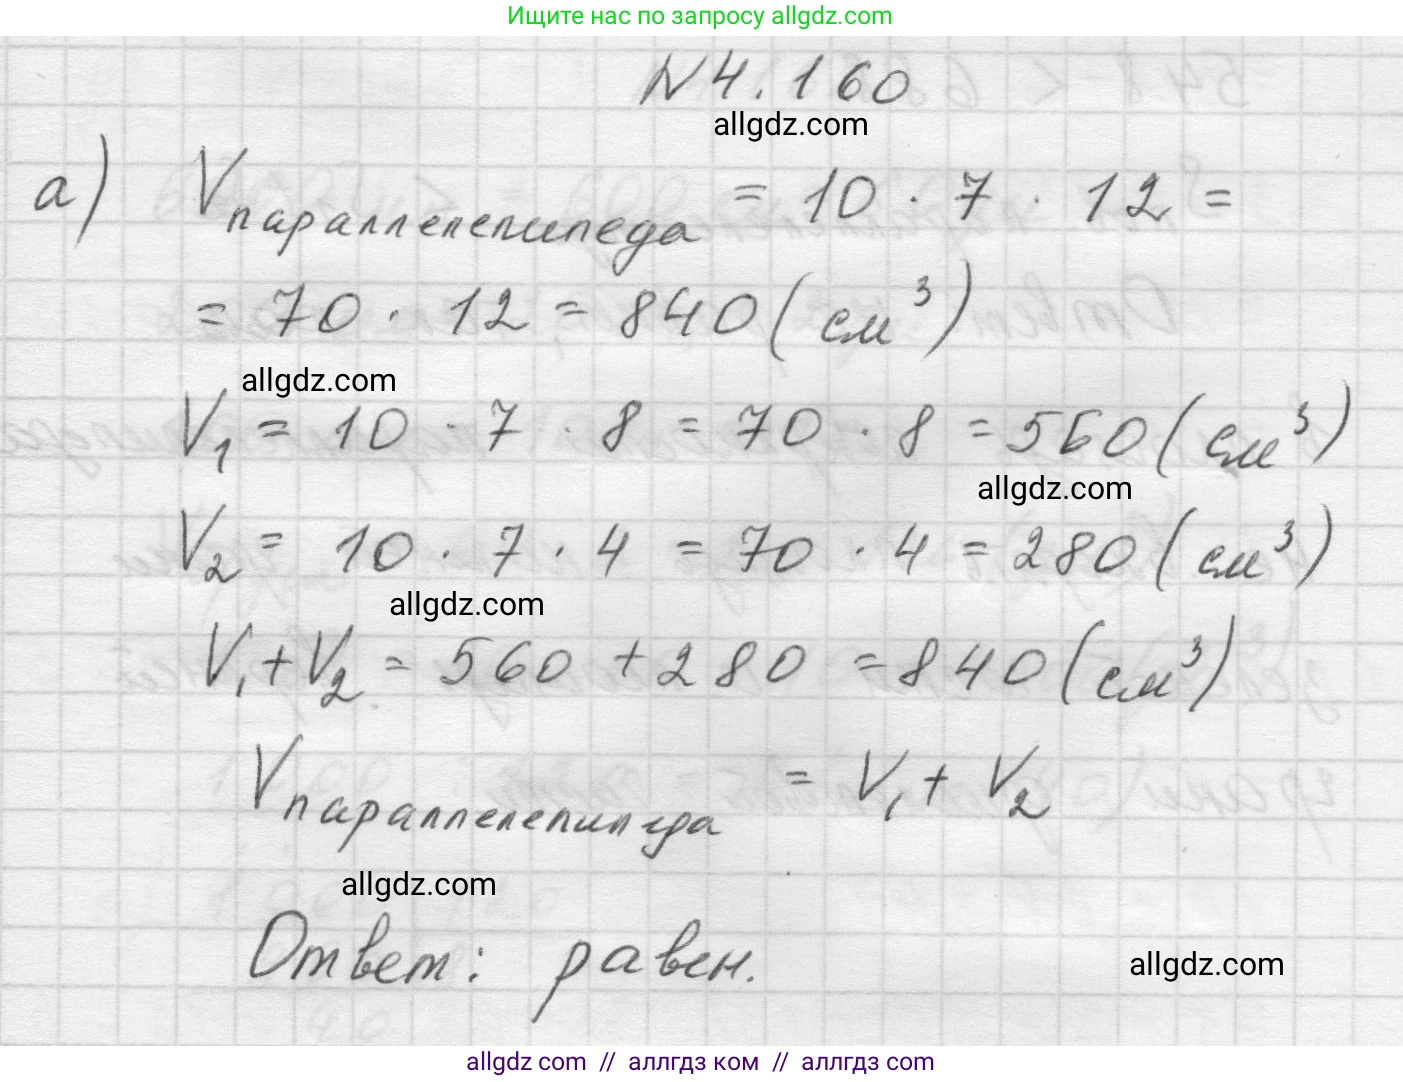 Ищите нас по запросу allgdz.com
N 4.160
allgdz.com
а) Vпараллелепипеда = 10 · 7 · 12 =
= 70 · 12 = 840 (см³)
allgdz.com
V₁ = 10 · 7 · 8 = 70 · 8 = 560 (см³)
allgdz.com
V₂ = 10 · 7 · 4 = 70 · 4 = 280 (см³)
allgdz.com
V₁ + V₂ = 560 + 280 = 840 (см³)
Vпараллелепипеда = V₁ + V₂
allgdz.com
Ответ: равен.
allgdz.com
allgdz com // аллгдз ком // аллгдз com